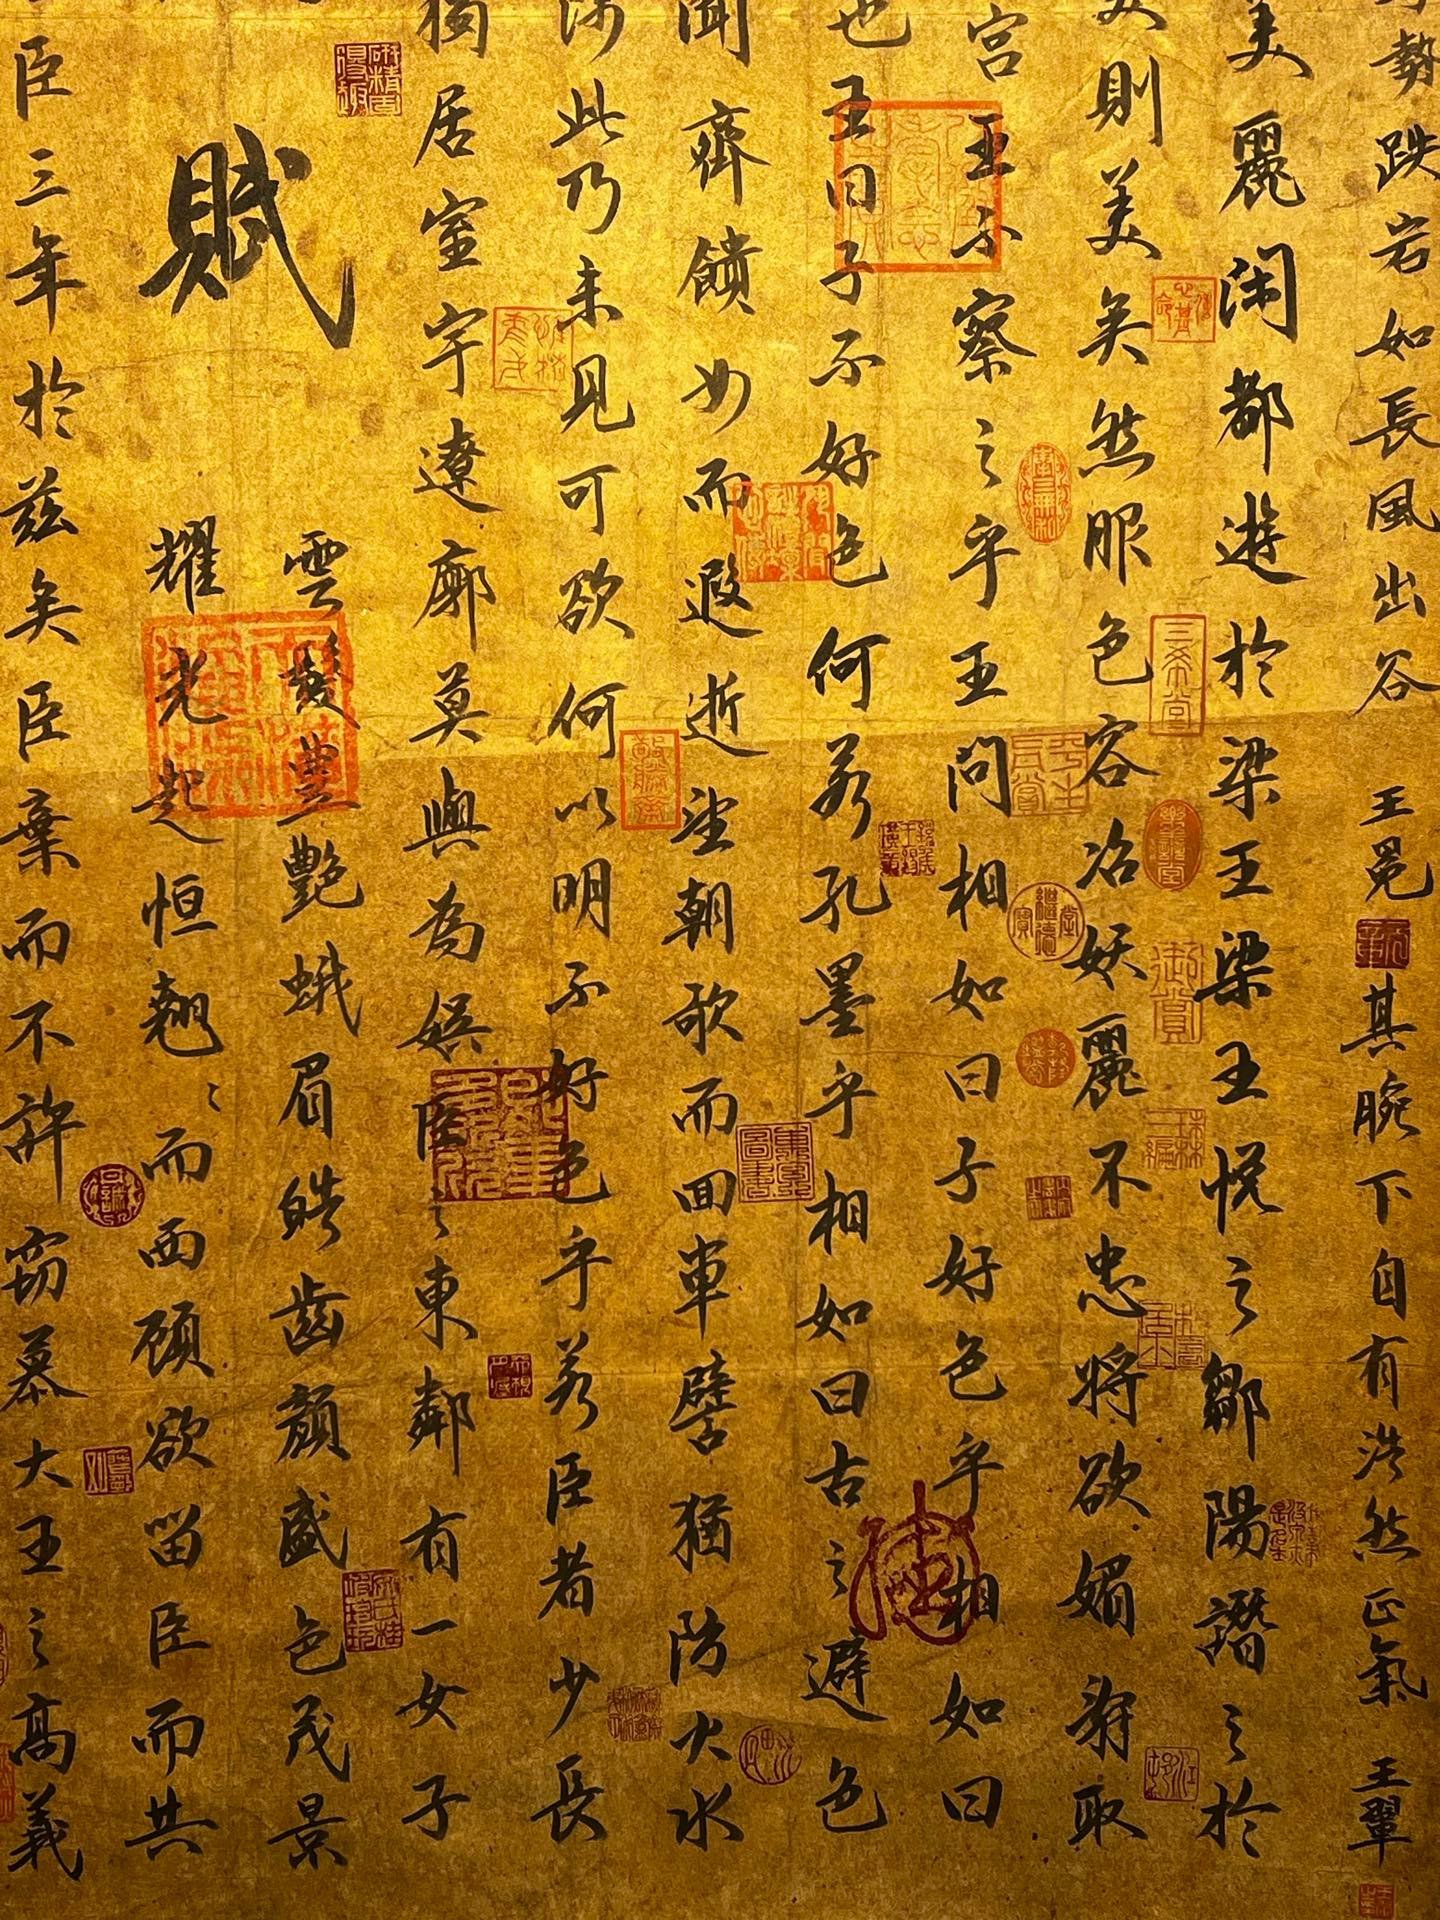 勢跌宕如長風出谷 王冕 其腕下自有浩然正氣 王鞏
美麗閑都遊於梁王梁王悅之鄒陽譖之於
則美矣然服色容冶妖麗不忠將欲媚辭取
宮王不察之乎王問相如曰子好色乎相如曰
也王曰子不好色何若孔墨乎相如曰古之避色
聞齊饋女而遐逝望朝歌而回車譬猶防火水
此乃未見可欲何以明不好色乎若臣者少長
獨居室宇遼廓莫與為娛臣之東鄰有一女子
賦
雲髮豐艷蛾眉皓齒顏盛色茂景
耀光起恒翹〻而西顧欲留臣而共
臣三年於茲矣臣棄而不許竊慕大王之高義
三希堂
御賞